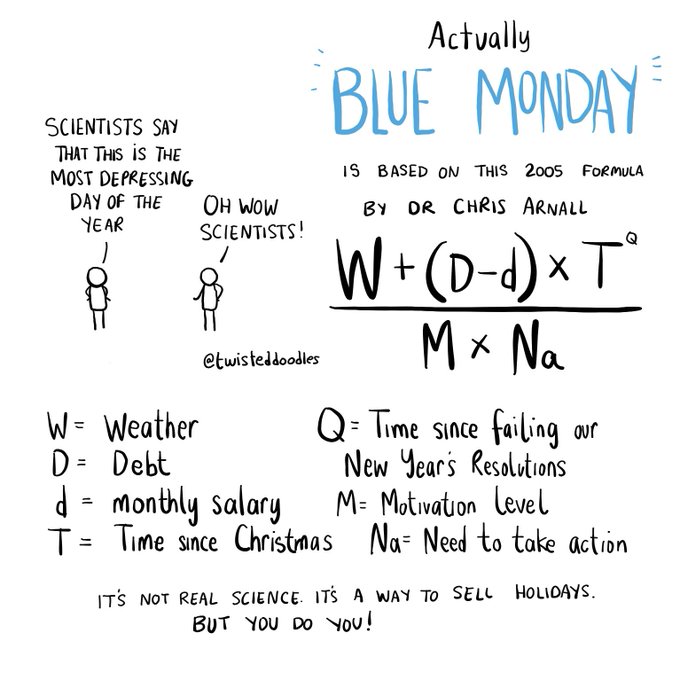 Actually
BLUE MONDAY
IS BASED ON THIS 2005 FORMULA
BY DR CHRIS ARNALL
SCIENTISTS SAY
THAT THIS IS THE
MOST DEPRESSING
DAY OF THE
YEAR
OH WOW
SCIENTISTS!
@twisteddoodles
W + (D-d) x T^Q
M x Na
W = Weather
D = Debt
d = monthly salary
T = Time since Christmas
Q = Time since failing our
New Year's Resolutions
M = Motivation level
Na = Need to take action
IT'S NOT REAL SCIENCE. IT'S A WAY TO SELL HOLIDAYS.
BUT YOU DO YOU!